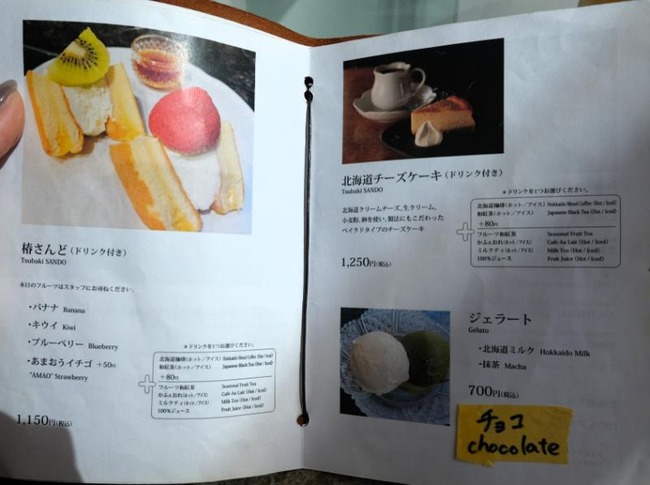 椿さんど（ドリンク付き）
Tsubaki SANDO
本日のフルーツはスタッフにお尋ねください。
・バナナ Banana
・キウイ Kiwi
・ブルーベリー Blueberry
・あまおうイチゴ +50円
"AMAO" Strawberry
1,150円(税込)
＊ドリンクを1つお選びください。
北海道珈琲(ホット／アイス) Hokkaido Blend Coffee (Hot / Iced)
和紅茶(ホット／アイス) Japanese Black Tea (Hot / Iced)
+80円
フルーツ和紅茶 Seasonal Fruit Tea
かふぇおれ(ホット／アイス) Cafe Au Lait (Hot / Iced)
ミルクティ(ホット／アイス) Milk Tea (Hot / Iced)
100%ジュース Fruit Juice (Hot / Iced)
北海道チーズケーキ（ドリンク付き）
Tsubaki SANDO
北海道クリームチーズ、生クリーム、
小麦粉、卵を使い、製法にもこだわった
ベイクドタイプのチーズケーキ
1,250円(税込)
＊ドリンクを1つお選びください。
北海道珈琲(ホット／アイス) Hokkaido Blend Coffee (Hot / Iced)
和紅茶(ホット／アイス) Japanese Black Tea (Hot / Iced)
+80円
フルーツ和紅茶 Seasonal Fruit Tea
かふぇおれ(ホット／アイス) Cafe Au Lait (Hot / Iced)
ミルクティ(ホット／アイス) Milk Tea (Hot / Iced)
100%ジュース Fruit Juice (Hot / Iced)
ジェラート
Gelato
・北海道ミルク Hokkaido Milk
・抹茶 Macha
700円(税込)
チョコ
chocolate